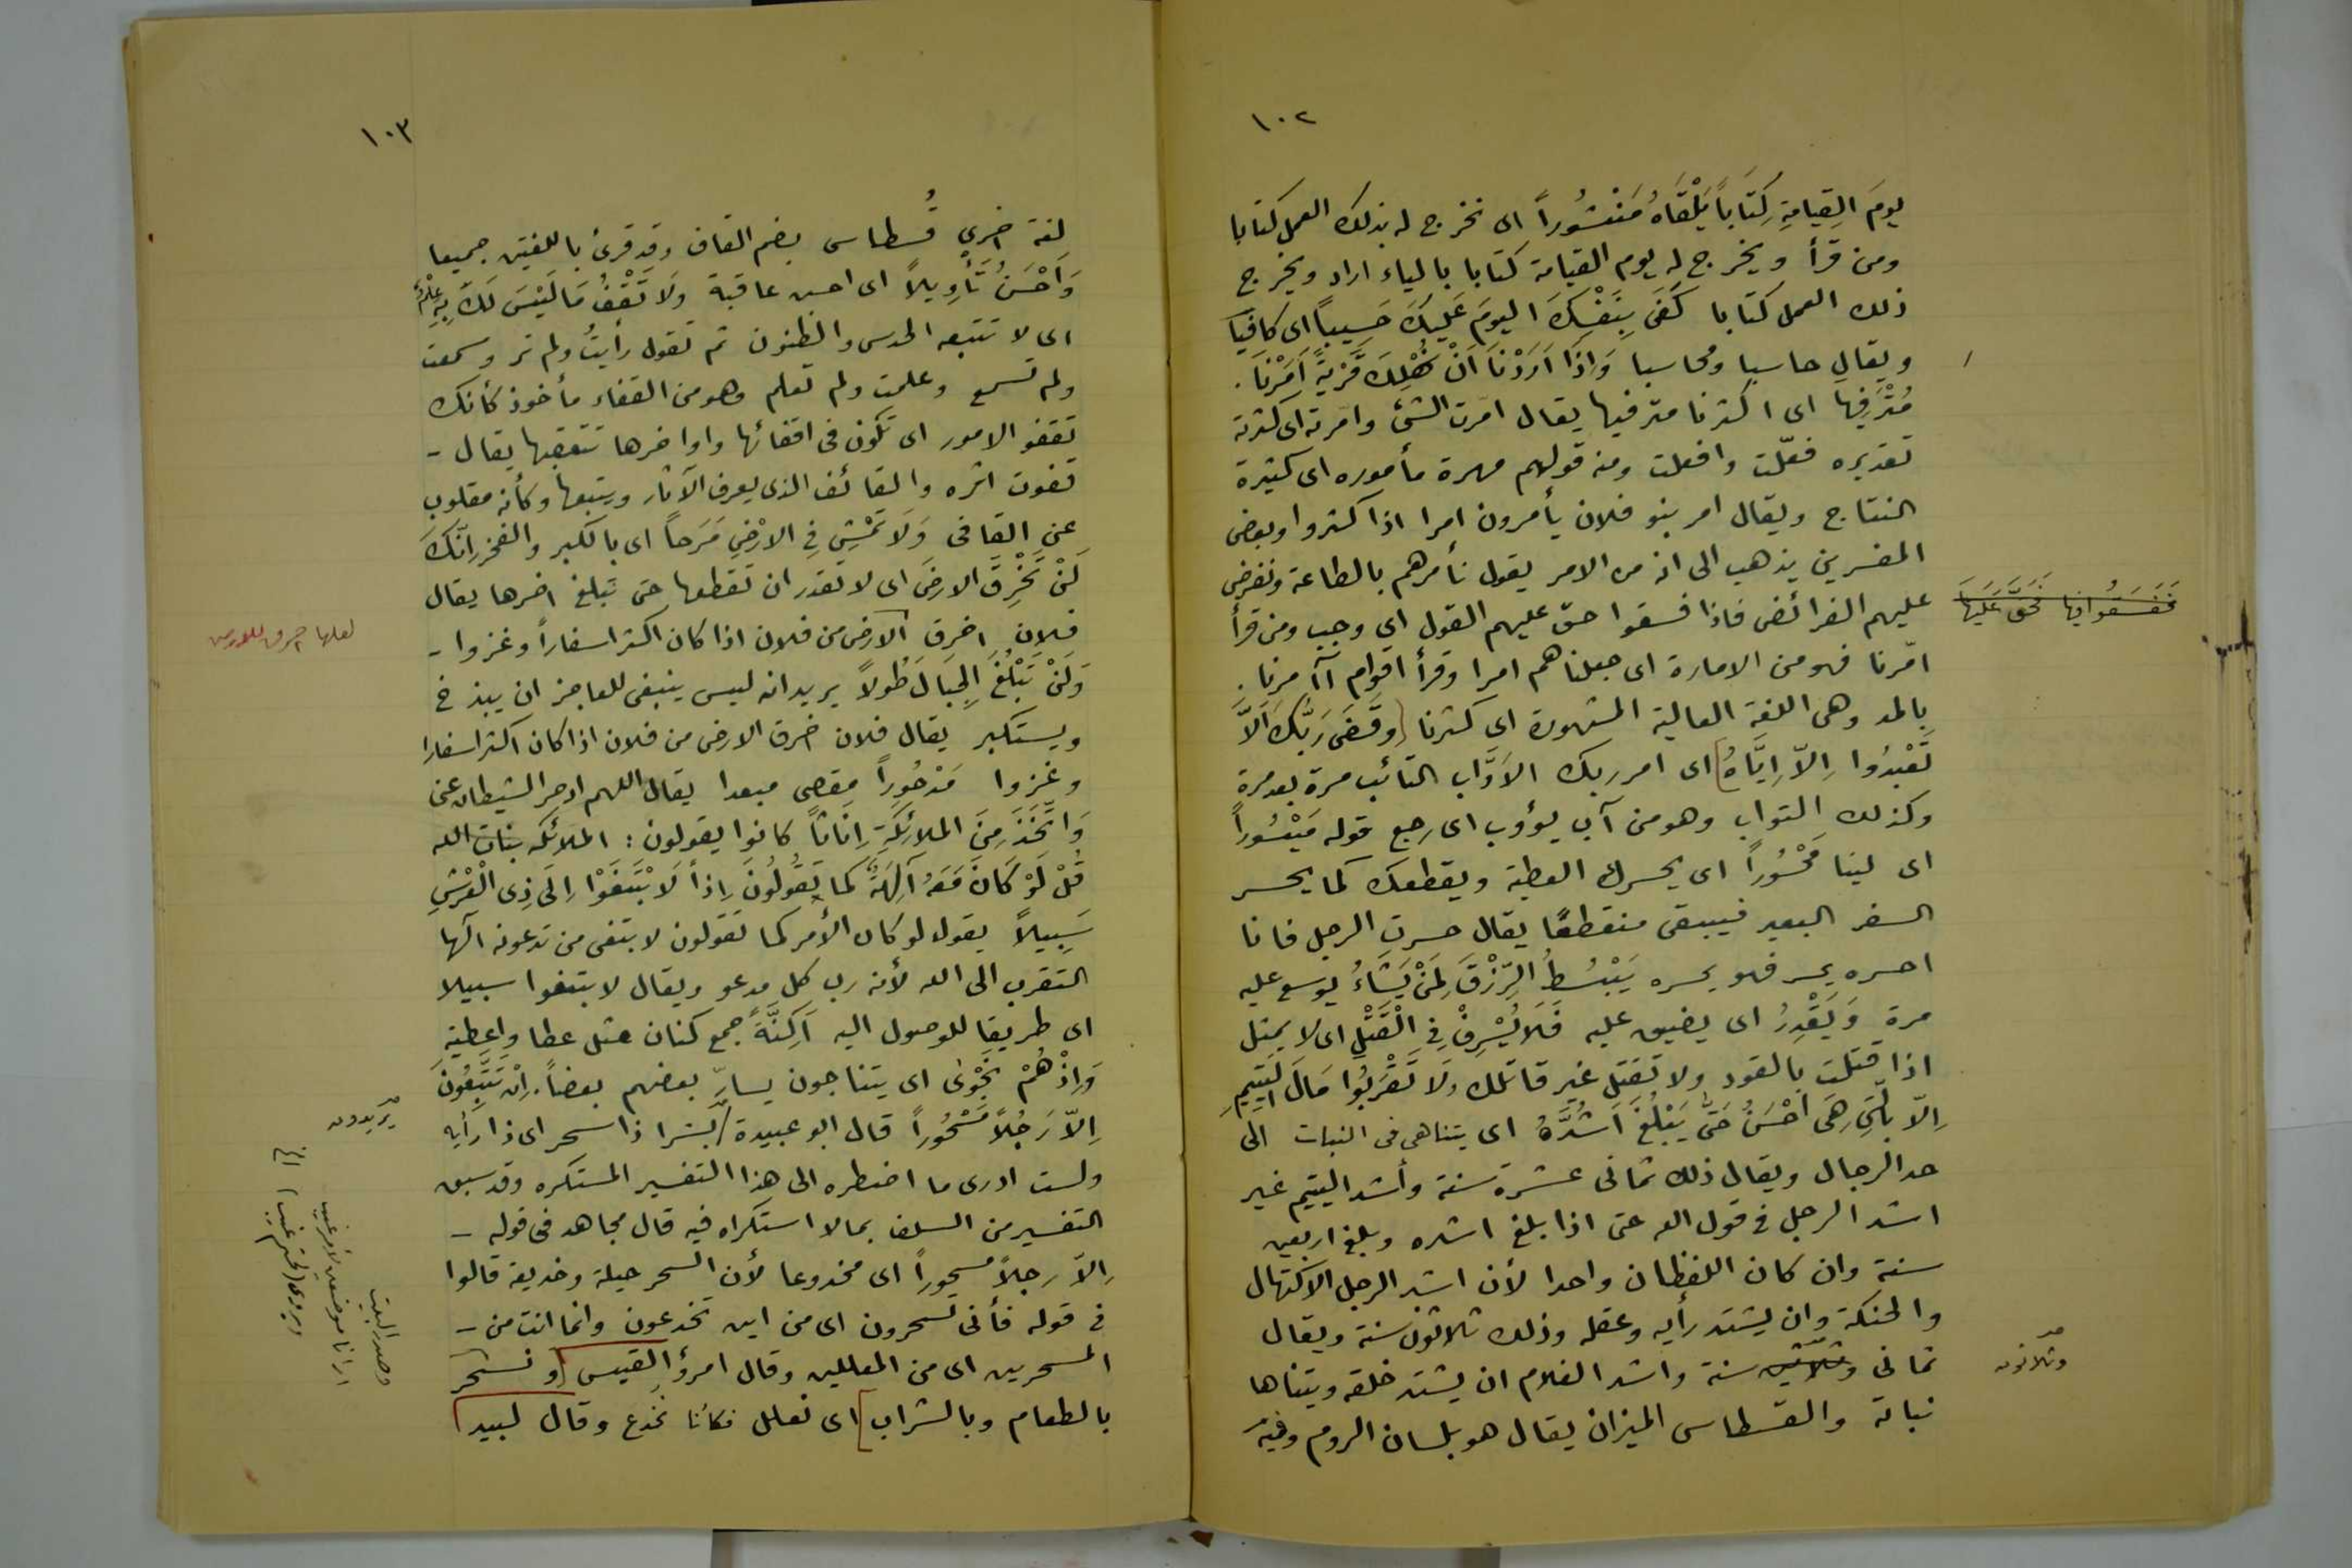 ١٠٢
يومَ القِيامَةِ كِتَاباً يَلْقَاهُ مَنْشُوراً اى نخرج له بذلك العمل كتابا
ومن قرأ ويخرج له يوم القيامة كتابا بالياء اراد ويخرج
ذلك العمل كتابا كَفَى بِنَفْسِكَ اليومَ عَلَيكَ حَسِيباً اى كافيا
ويقال حاسبا ومحاسبا وَاِذَا اَرَدْنَا اَنْ نُهْلِكَ قَرْيَةً اَمَرْنَا
مُتْرَفِيهَا اى اكثرنا مترفيها يقال امّرت الشئ وامّرته اى كثرته
تقديره فعّلت وافعلت ومنه قولهم مهرة مأموره اى كثيرة
النتاج ويقال امر بنو فلان يأمرون امرا اذا كثروا وبعض
المفسرين يذهب الى انه من الامر يقول نأمرهم بالطاعة ونفرض
عليهم الفرائض فاذا فسقوا حق عليهم القول اي وجب ومن قرأ
فَفَسَقُوا فِيها فَحَقَّ عَلَيهَا
امّرنا فهو من الامارة اى جعلناهم امرا وقرأ اقوام آآمرنا
بالمد وهى اللغة العالية المشهورة اى كثرنا [وقَضَى رَبُّكَ اَلاَّ
تَعْبُدُوا اِلاَّ اِيَّاهُ] اى امر ربك الاَوَّاب التائب مرة بعد مرة
وكذلك التواب وهو من آب يؤوب اى رجع قوله مَيْسُوراً
اى لينا مَحْسُوراً اى يحسرك العطية ويقطعك كما يحسر
السفر البعير فيبقى منقطعًا يقال حسرت الرجل فانا
احسره يحسر فهو يحسره يَبْسُطُ الرِّزْقَ لِمَنْ يَشَاءُ يوسع عليه
مرة وَيَقْدِرُ اى يضيق عليه فَلَا يُسْرِفْ فِى الْقَتْلِ اى لا يمثل
اذا قتلت بالقود ولا تقتل غير قاتلك وَلَا تَقْرَبُوا مَالَ اليَتِيمِ
اِلاّ بالَّتِى هِىَ اَحْسَنُ حَتَّى يَبْلُغَ اَشُدَّهُ اى يتناهى فى النبات الى
حد الرجال ويقال ذلك ثمانى عشرة سنة وأشد اليتيم غير
اشد الرجل فى قول الله حتى اذا بلغ اشده وبلغ اربعين
سنة وان كان اللفظان واحدا لأن اشد الرجل الاكتهال
والحنكة وان يشتد رأيه وعقله وذلك ثلاثون سنة ويقال
ثمانى وثلاثين سنة واشد الغلام ان يشتد خلقه ويتناها
وثلاثون
نباته والقسطاس الميزان يقال هو بلسان الروم وفيه
١٠٣
لغة اخرى قُسطاس بضم القاف وقد قرئ باللغتين جميعا
وَاَحْسَنُ تَأوِيلاً اى احسن عاقبة وَلَا تَقْفُ مَا لَيْسَ لَكَ بِهِ عِلْمٌ
اى لا تتبعه الحدس والظنون ثم تقول رأيتُ ولم تر وسمعت
ولم تسمع وعلمت ولم تعلم وهو من القفاء مأخوذ كأنك
تقفو الامور اى تكون فى اقفائها واواخرها تتعقبها يقال -
قفوت اثره والقائف الذى يعرف الآثار ويتبعها وكأنه مقلوب
عن القافى وَلَا تَمْشِ فِى الارْضِ مَرَحاً اى بالكبر والفخر اِنَّكَ
لَنْ تَخْرِقَ الارضَ اى لا تقدر ان تقطعها حتى تبلغ اخرها يقال
فلان اخرق الارض من فلان اذا كان اكثر اسفاراً وغزوا -
لعلها اخرق للارض
وَلَنْ تَبْلُغَ الجِبَالَ طُولاً يريد انه ليس ينبغى للعاجز ان يبذخ
ويستكبر يقال فلان اخرق الارض من فلان اذا كان اكثر اسفارا
وغزوا مَدْحُوراً مقصى مبعدا يقال اللهم ادحر الشيطان عنى
وَاتَّخَذَ مِنَ الملائِكَةِ اِنَاثاً كانوا يقولون : الملائكه بنات الله
قُلْ لَوْ كَانَ مَعَهُ آلِهَةٌ كما يَقُولُونَ اِذاً لَابْتَغَوْا اِلَى ذِى الْعَرْشِ
سَبِيلاً يقول لو كان الأمر كما تقولون لابتغى من تدعونه الها
التقرب الى الله لأنه رب كل مدعو ويقال لابتغوا سبيلا
اى طريقا للوصول اليه اَكِنَّةً جمع كنان مثل غطا واغطية
وَاِذْ هُمْ نَجْوَىٰ اى يتناجون يسارّ بعضهم بعضاً . اِنْ تَتَّبِعُونَ
اِلاّ رَجُلاً مَسْحُوراً قال ابو عبيدة بشرا ذا سحر اى ذا رأيه
يريدون
ولست ادرى ما اضطره الى هذا التفسير المستكره وقد سبق
التفسير من السلف بما لا استكراه فيه قال مجاهد فى قوله -
اِلاّ رجلاً مسحوراً اى مخدوعا لأن السحر حيلة وخديعة قالوا
فى قوله فأنى تسحرون اى من اين تخدعون وانما انت من -
المسحرين اى من المعللين وقال امرؤ القيس [ونسحر
بالطعام وبالشراب] اى نعلل فكأنا نخدع وقال لبيد
وصدر البيت
ارانا موضعين لأمر غيب
ويروى (لحتم غيب) الخ